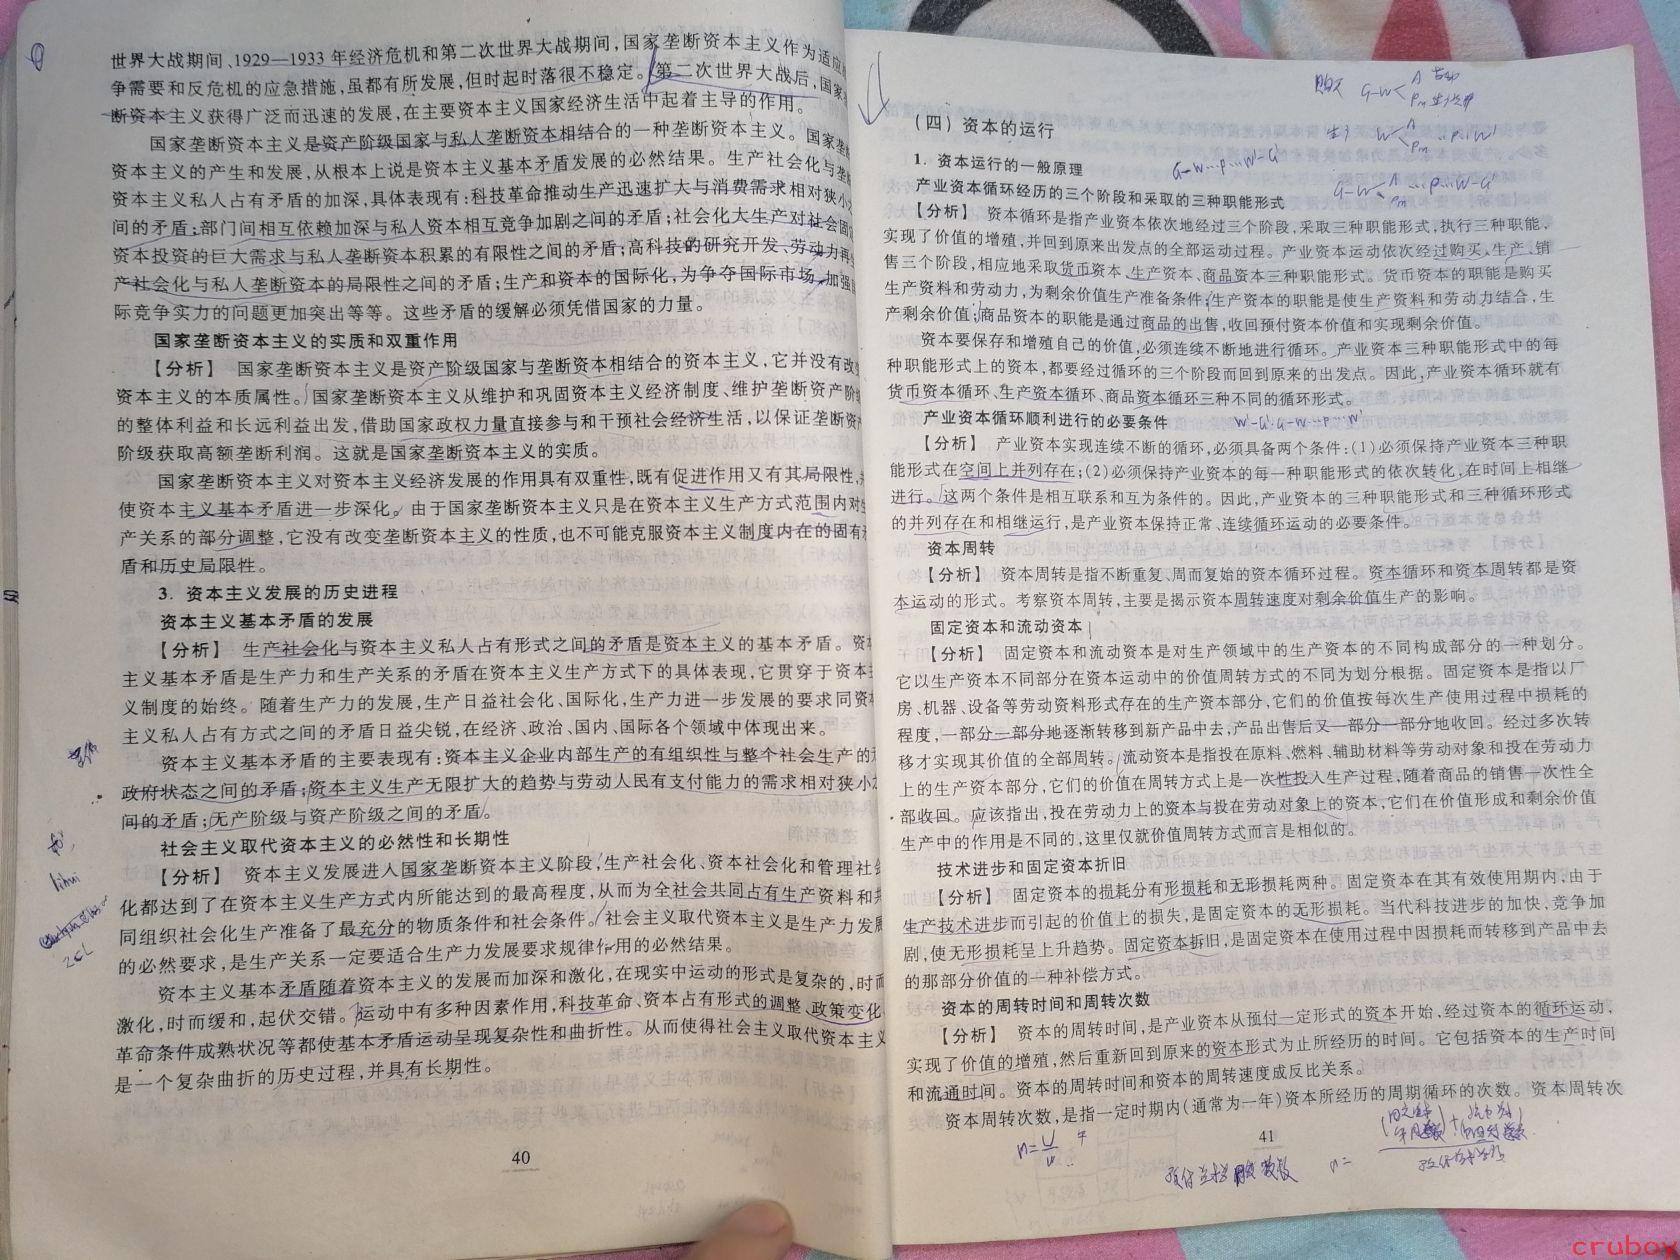 世界大战期间、1929—1933年经济危机和第二次世界大战期间,国家垄断资本主义作为适应
争需要和反危机的应急措施,虽都有所发展,但时起时落很不稳定。第二次世界大战后,国家
断资本主义获得广泛而迅速的发展,在主要资本主义国家经济生活中起着主导的作用。
国家垄断资本主义是资产阶级国家与私人垄断资本相结合的一种垄断资本主义。国家垄
资本主义的产生和发展,从根本上说是资本主义基本矛盾发展的必然结果。生产社会化与垄
资本主义私人占有矛盾的加深,具体表现有:科技革命推动生产迅速扩大与消费需求相对狭小
间的矛盾;部门间相互依赖加深与私人资本相互竞争加剧之间的矛盾;社会化大生产对社会固
资本投资的巨大需求与私人垄断资本积累的有限性之间的矛盾;高科技的研究开发、劳动力再
产社会化与私人垄断资本的局限性之间的矛盾;生产和资本的国际化,为争夺国际市场,加强
际竞争实力的问题更加突出等等。这些矛盾的缓解必须凭借国家的力量。
国家垄断资本主义的实质和双重作用
【分析】 国家垄断资本主义是资产阶级国家与垄断资本相结合的资本主义,它并没有改
资本主义的本质属性。国家垄断资本主义从维护和巩固资本主义经济制度、维护垄断资产阶
的整体利益和长远利益出发,借助国家政权力量直接参与和干预社会经济生活,以保证垄断资
阶级获取高额垄断利润。这就是国家垄断资本主义的实质。
国家垄断资本主义对资本主义经济发展的作用具有双重性,既有促进作用又有其局限性,
使资本主义基本矛盾进一步深化。由于国家垄断资本主义只是在资本主义生产方式范围内对
产关系的部分调整,它没有改变垄断资本主义的性质,也不可能克服资本主义制度内在的固有
盾和历史局限性。
3. 资本主义发展的历史进程
资本主义基本矛盾的发展
【分析】 生产社会化与资本主义私人占有形式之间的矛盾是资本主义的基本矛盾。资
主义基本矛盾是生产力和生产关系的矛盾在资本主义生产方式下的具体表现,它贯穿于资本
义制度的始终。随着生产力的发展,生产日益社会化、国际化,生产力进一步发展的要求同资
主义私人占有方式之间的矛盾日益尖锐,在经济、政治、国内、国际各个领域中体现出来。
资本主义基本矛盾的主要表现有:资本主义企业内部生产的有组织性与整个社会生产的
政府状态之间的矛盾;资本主义生产无限扩大的趋势与劳动人民有支付能力的需求相对狭小
间的矛盾;无产阶级与资产阶级之间的矛盾。
社会主义取代资本主义的必然性和长期性
【分析】 资本主义发展进入国家垄断资本主义阶段,生产社会化、资本社会化和管理社
化都达到了在资本主义生产方式内所能达到的最高程度,从而为全社会共同占有生产资料和
同组织社会化生产准备了最充分的物质条件和社会条件。社会主义取代资本主义是生产力发
的必然要求,是生产关系一定要适合生产力发展要求规律作用的必然结果。
资本主义基本矛盾随着资本主义的发展而加深和激化,在现实中运动的形式是复杂的,时而
激化,时而缓和,起伏交错。运动中有多种因素作用,科技革命、资本占有形式的调整、政策变化
革命条件成熟状况等都使基本矛盾运动呈现复杂性和曲折性。从而使得社会主义取代资本主
是一个复杂曲折的历史过程,并具有长期性。
40
(四) 资本的运行
1. 资本运行的一般原理
G-W…P…W'-G'
产业资本循环经历的三个阶段和采取的三种职能形式
【分析】 资本循环是指产业资本依次地经过三个阶段,采取三种职能形式,执行三种职能,
实现了价值的增殖,并回到原来出发点的全部运动过程。产业资本运动依次经过购买、生产、销
售三个阶段,相应地采取货币资本、生产资本、商品资本三种职能形式。货币资本的职能是购买
生产资料和劳动力,为剩余价值生产准备条件;生产资本的职能是使生产资料和劳动力结合,生
产剩余价值;商品资本的职能是通过商品的出售,收回预付资本价值和实现剩余价值。
资本要保存和增殖自己的价值,必须连续不断地进行循环。产业资本三种职能形式中的每
种职能形式上的资本,都要经过循环的三个阶段而回到原来的出发点。因此,产业资本循环就有
货币资本循环、生产资本循环、商品资本循环三种不同的循环形式。
产业资本循环顺利进行的必要条件 W'-G'·G-W…P…W'
【分析】 产业资本实现连续不断的循环,必须具备两个条件:(1)必须保持产业资本三种职
能形式在空间上并列存在;(2)必须保持产业资本的每一种职能形式的依次转化,在时间上相继
进行。这两个条件是相互联系和互为条件的。因此,产业资本的三种职能形式和三种循环形式
的并列存在和相继运行,是产业资本保持正常、连续循环运动的必要条件。
资本周转
【分析】 资本周转是指不断重复、周而复始的资本循环过程。资本循环和资本周转都是资
本运动的形式。考察资本周转,主要是揭示资本周转速度对剩余价值生产的影响。
固定资本和流动资本
【分析】 固定资本和流动资本是对生产领域中的生产资本的不同构成部分的一种划分。
它以生产资本不同部分在资本运动中的价值周转方式的不同为划分根据。固定资本是指以厂
房、机器、设备等劳动资料形式存在的生产资本部分,它们的价值按每次生产使用过程中损耗的
程度,一部分一部分地逐渐转移到新产品中去,产品出售后又一部分一部分地收回。经过多次转
移才实现其价值的全部周转。流动资本是指投在原料、燃料、辅助材料等劳动对象和投在劳动力
上的生产资本部分,它们的价值在周转方式上是一次性投入生产过程,随着商品的销售一次性全
部收回。应该指出,投在劳动力上的资本与投在劳动对象上的资本,它们在价值形成和剩余价值
生产中的作用是不同的,这里仅就价值周转方式而言是相似的。
技术进步和固定资本折旧
【分析】 固定资本的损耗分有形损耗和无形损耗两种。固定资本在其有效使用期内,由于
生产技术进步而引起的价值上的损失,是固定资本的无形损耗。当代科技进步的加快、竞争加
剧,使无形损耗呈上升趋势。固定资本折旧,是固定资本在使用过程中因损耗而转移到产品中去
的那部分价值的一种补偿方式。
资本的周转时间和周转次数
【分析】 资本的周转时间,是产业资本从预付一定形式的资本开始,经过资本的循环运动,
实现了价值的增殖,然后重新回到原来的资本形式为止所经历的时间。它包括资本的生产时间
和流通时间。资本的周转时间和资本的周转速度成反比关系。
资本周转次数,是指一定时期内(通常为一年)资本所经历的周期循环的次数。资本周转次
41
crubox